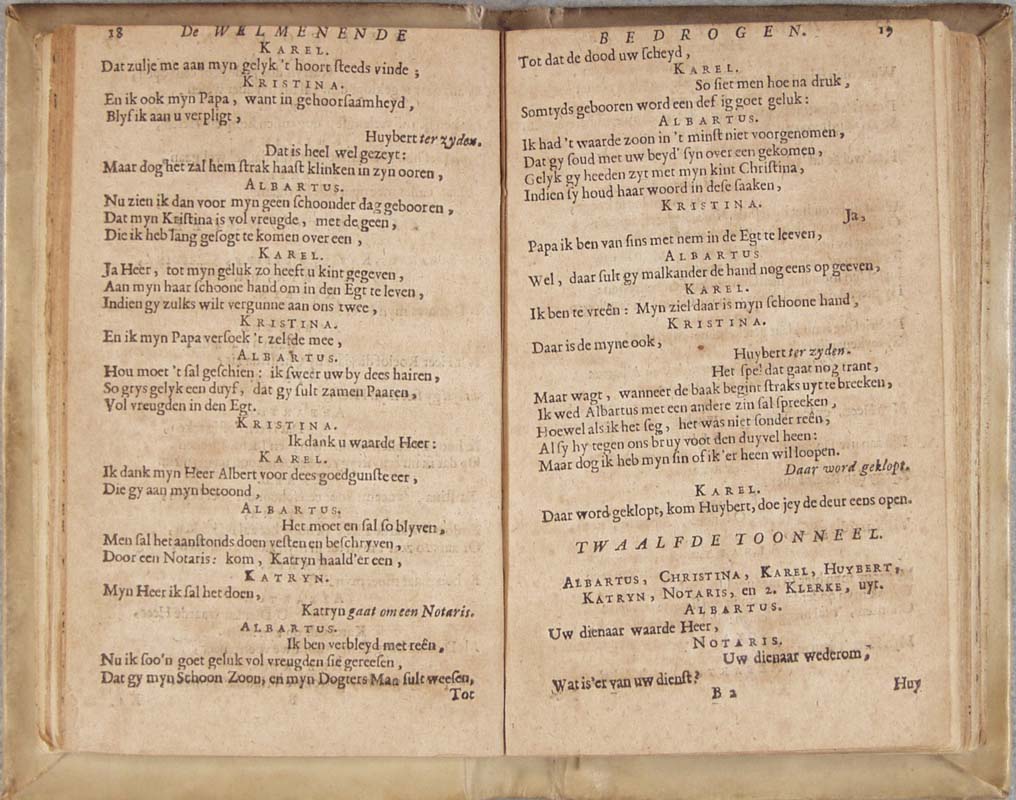 18 De WELMENENDE
KAREL.
Dat zulje me aan myn gelyk 't hoort steeds vinde ;
KRISTINA.
En ik ook myn Papa, want in gehoorsaamheyd,
Blyf ik aan u verpligt,
Huybert ter zyden.
Dat is heel wel gezeyt:
Maar dog het zal hem strak haast klinken in zyn ooren,
ALBARTUS.
Nu zien ik dan voor myn geen schoonder dag gebooren,
Dat myn Kristina is vol vreugde, met de geen,
Die ik heb lang gesogt te komen over een,
KAREL.
Ja Heer, tot myn geluk zo heeft u kint gegeven,
Aan myn haar schoone hand om in den Egt te leven,
Indien gy zulks wilt vergunne aan ons twee,
KRISTINA.
En ik myn Papa versoek 't zelfde mee,
ALBARTUS.
Hou moet 't sal geschien: ik sweer uw by dees hairen,
So grys gelyk een duyf, dat gy sult zamen Paaren,
Vol vreugden in den Egt.
KRISTINA.
Ik dank u waarde Heer:
KAREL.
Ik dank myn Heer Albert voor dees goedgunste eer,
Die gy aan myn betoond,
ALBARTUS.
Het moet en sal so blyven,
Men sal het aanstonds doen vesten en beschryven,
Door een Notaris: kom, Katryn haald'er een,
KATRYN.
Myn Heer ik sal het doen,
Katryn gaat om een Notaris.
ALBARTUS.
Ik ben verbleyd met reên,
Nu ik soo'n goet geluk vol vreugden sie gereesen,
Dat gy myn Schoon Zoon, en myn Dogters Man sult weesen,
Tot
BEDROGEN. 19
Tot dat de dood uw scheyd,
KAREL.
So siet men hoe na druk,
Somtyds gebooren word een deftig goet geluk:
ALBARTUS.
Ik had 't waarde zoon in 't minst niet voorgenomen,
Dat gy soud met uw beyd' syn over een gekomen,
Gelyk gy heeden zyt met myn kint Christina,
Indien sy houd haar woord in dese saaken,
KRISTINA.
Ja,
Papa ik ben van sins met hem in de Egt te leeven,
ALBARTUS
Wel, daar sult gy malkander de hand nog eens op geeven,
KAREL.
Ik ben te vreên: Myn ziel daar is myn schoone hand,
KRISTINA.
Daar is de myne ook,
Huybert ter zyden.
Het spel dat gaat nog trant,
Maar wagt, wanneer de baak begint straks uyt te breeken,
Ik wed Albartus met een andere zin sal spreeken,
Hoewel als ik het seg, het was niet sonder reên,
Al sy hy tegen ons bruy voot den duyvel heen:
Maar dog ik heb myn sin of ik 'er heen wil loopen.
Daar word geklopt.
KAREL.
Daar word geklopt, kom Huybert, doe jey de deur eens open.
TWAALFDE TOONNEEL.
ALBARTUS, CHRISTINA, KAREL, HUYBERT,
KATRYN, NOTARIS, en 2. KLERKE, uyt.
ALBARTUS.
Uw dienaar waarde Heer,
NOTARIS.
Uw dienaar wederom,
Wat is'er van uw dienst?
B 2 Huy